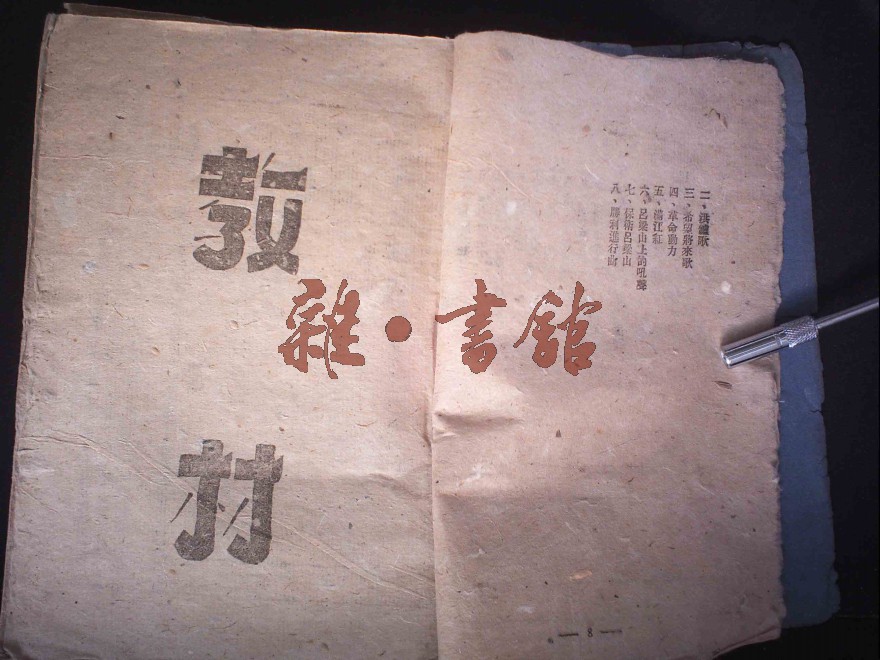 二、洪爐歌
三、希望將來歌
四、革命動力
五、滿江紅
六、呂梁山上的吼聲
七、保衛呂梁山
八、勝利進行曲
— 8 —
教材
雜·書館